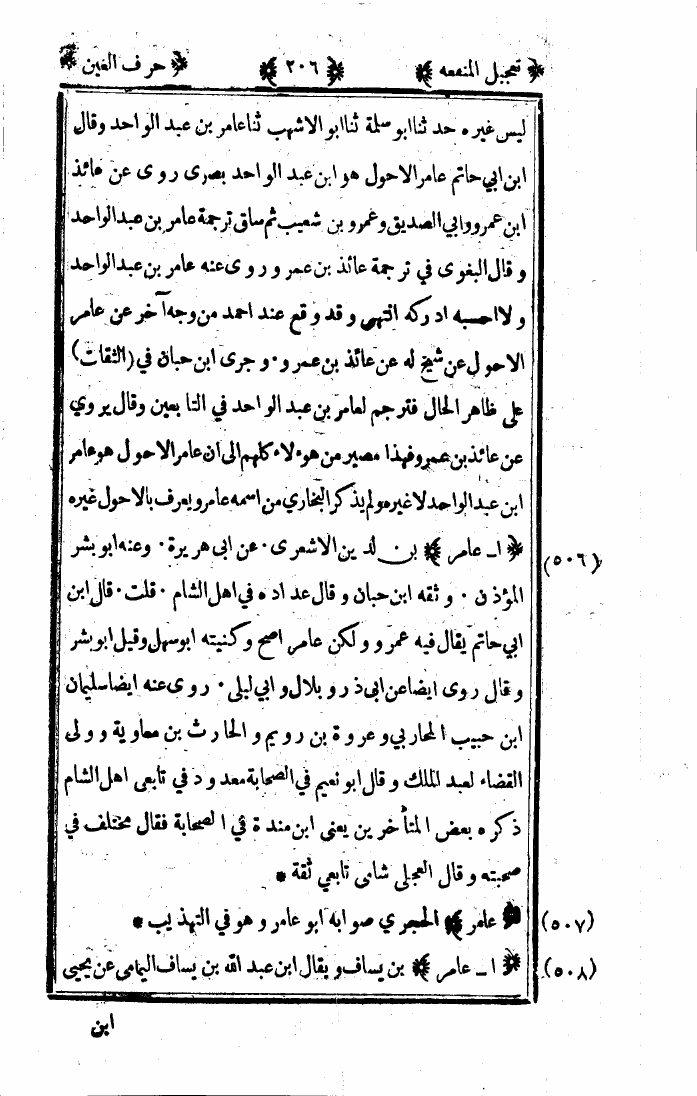 ﴿ تعجيل المنفعه ﴾ ﴿ ٢٠٦ ﴾ ﴿ حرف الغين ﴾
ليس غيره حدثنا ابو سلمة ثنا ابو الاشهب ثنا عامر بن عبد الواحد وقال
ابن ابي حاتم عامر الاحول هو ابن عبد الواحد بصرى روى عن عائذ
ابن عمرو وابي الصديق وعمرو بن شعيب ثم ساق ترجمة عامر بن عبد الواحد
وقال البغوى في ترجمة عائذ بن عمر و روى عنه عامر بن عبد الواحد
ولا احسبه ادركه انتهى وقد وقع عند احمد من وجه آخر عن عامر
الاحول عن شيخ له عن عائذ بن عمرو · وجرى ابن حبان في (الثقات)
على ظاهر الحال فترجم لعامر بن عبد الواحد في التابعين وقال يروي
عن عائذ بن عمرو فهذا مصير من هوءلاء كلهم الى ان عامر الاحول هو عامر
ابن عبد الواحد لا غيره ولم يذكر البخاري من اسمه عامر ويعرف بالاحول غيره
﴿ ا ـ عامر ﴾ بن لدين الاشعرى · عن ابى هريرة · وعنه ابو بشر (٥٠٦)
المؤذن · وثقه ابن حبان وقال عداده في اهل الشام · قلت · قال ابن
ابي حاتم يقال فيه عمرو ولكن عامر اصح وكنيته ابو سهل وقيل ابو بشر
وقال روى ايضا عن ابى ذر وبلال وابي ليلى · روى عنه ايضا سليمان
ابن حبيب المحاربي وعروة بن رويم والحارث بن معاوية وولى
القضاء لعبد الملك وقال ابو نعيم في الصحابة معدود في تابعى اهل الشام
ذكره بعض المتأخرين يعنى ابن مندة في الصحابة فقال مختلف في
صحبته وقال العجلى شامى تابعي ثقة *
﴿ عامر ﴾ الحجري صوابه ابو عامر وهو في التهذيب * (٥٠٧)
﴿ ا ـ عامر ﴾ بن يساف ويقال ابن عبد الله بن يساف اليمامى عن يحيى (٥٠٨)
ابن